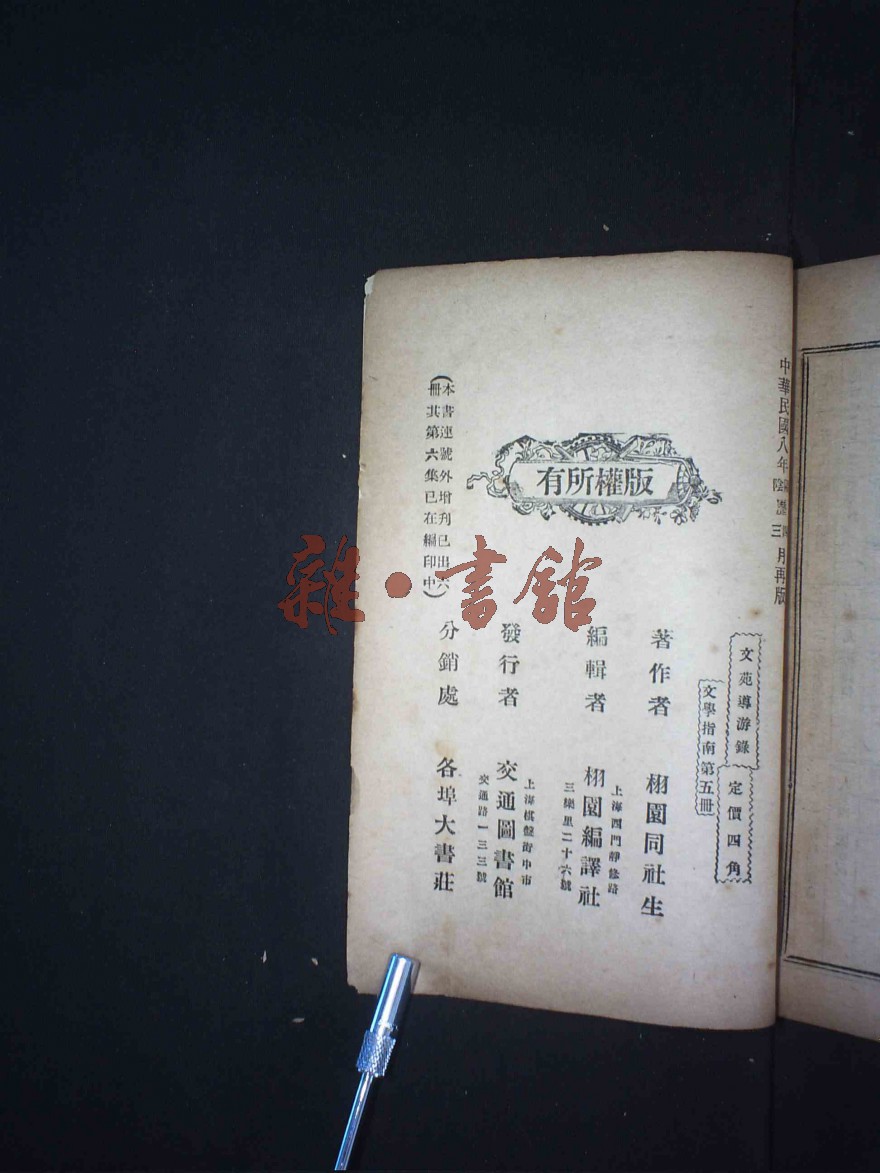 中華民國八年陰歷三月再版
文苑導游錄
定價四角
文學指南第五冊
版權所有
著作者 栩園同社生
編輯者 栩園編譯社
上海西門靜修路
三樂里二十六號
發行者 交通圖書館
上海棋盤街中市
交通路一三三號
分銷處 各埠大書莊
(本書連號外增刋已出六
冊其第六集已在編印中)
雜·書館